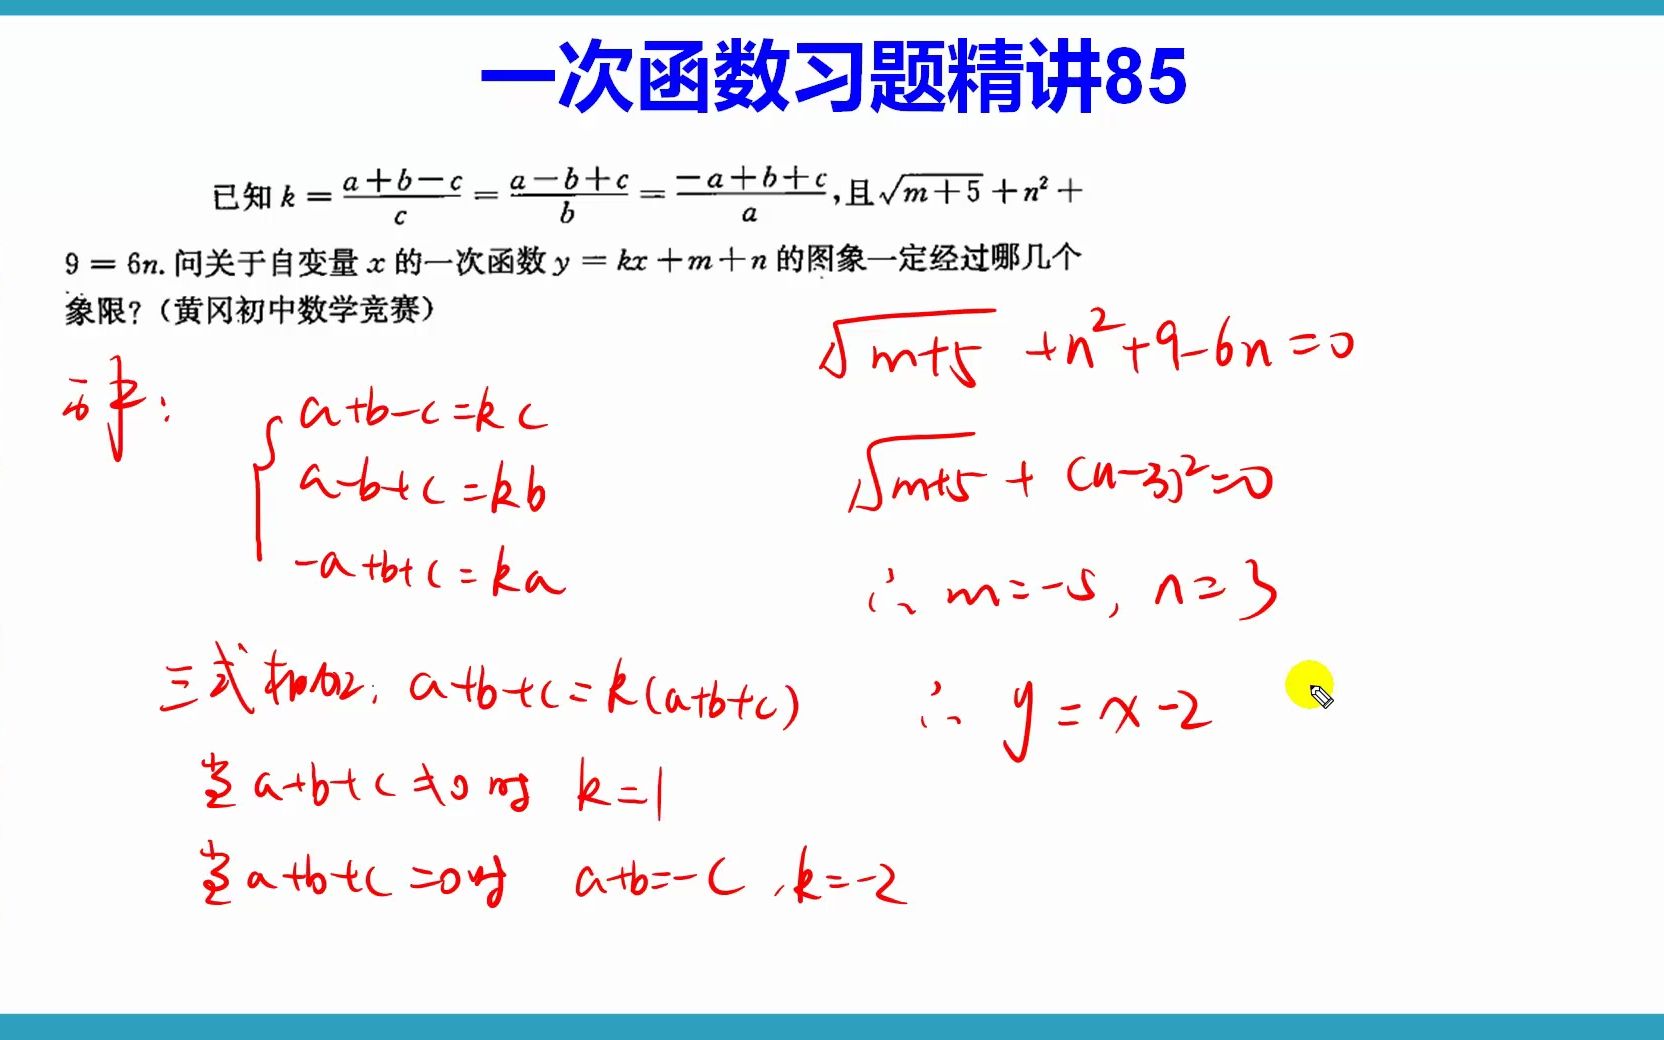 一次函数习题精讲85
已知 k = (a+b−c)/c = (a−b+c)/b = (−a+b+c)/a, 且 √(m+5) + n² +
9 = 6n. 问关于自变量 x 的一次函数 y = kx + m + n 的图象一定经过哪几个
象限? (黄冈初中数学竞赛)
解:
a+b−c=kc
a−b+c=kb
−a+b+c=ka
三式相加: a+b+c=k(a+b+c)
当 a+b+c≠0 时 k=1
当 a+b+c=0 时 a+b=−c, k=−2
√(m+5) +n²+9−6n=0
√(m+5) + (n−3)²=0
∴ m=−5, n=3
∴ y=x−2